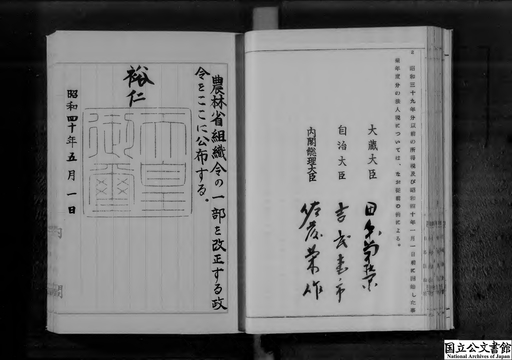 2 昭和三十九年分以前の所得税及び昭和四十年一月一日前に開始した事
業年度分の法人税については、なお従前の例による。
大蔵大臣 田中角榮
自治大臣 吉武恵市
内閣総理大臣 佐藤榮作
農林省組織令の一部を改正する政
令をここに公布する。
裕仁
天皇御璽
昭和四十年五月一日
国立公文書館
National Archives of Japan